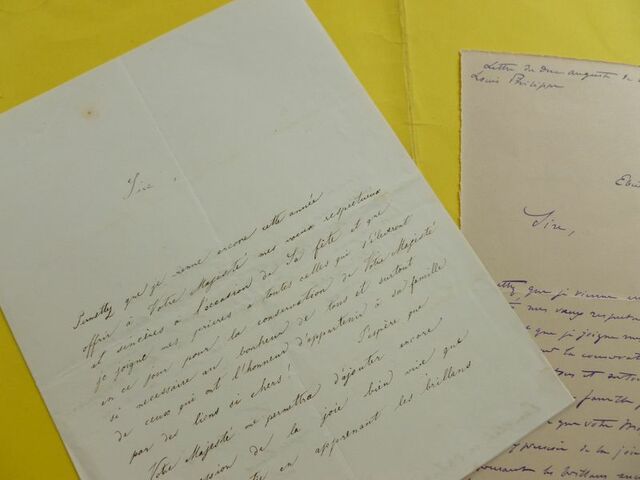 Sire,
Permettez que je vienne encore cette année
offrir à Votre Majesté mes vœux respectueux
et sincères à l'occasion de Sa fête et que
je joigne mes prières à toutes celles qui s'élèvent
en ce jour pour la conservation de Votre Majesté
si nécessaire au bonheur de tous et surtout
de ceux qui ont l'honneur d'appartenir à sa famille
par des liens si chers! J'espère que
Votre Majesté me permettra d'ajouter encore
de la joie bien vive que
en apprenant les brillans
Lettre du duc auguste de
Louis Philippe
Sire,
que je vienne
mes vœux
que je joigne
la conservation
et
famille
que votre
de la joie
les brillans